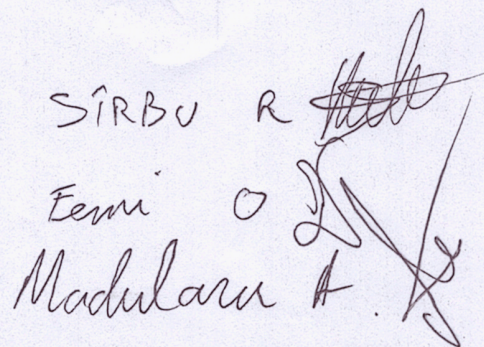 SÎRBU R
Eemi O
Madularu A.